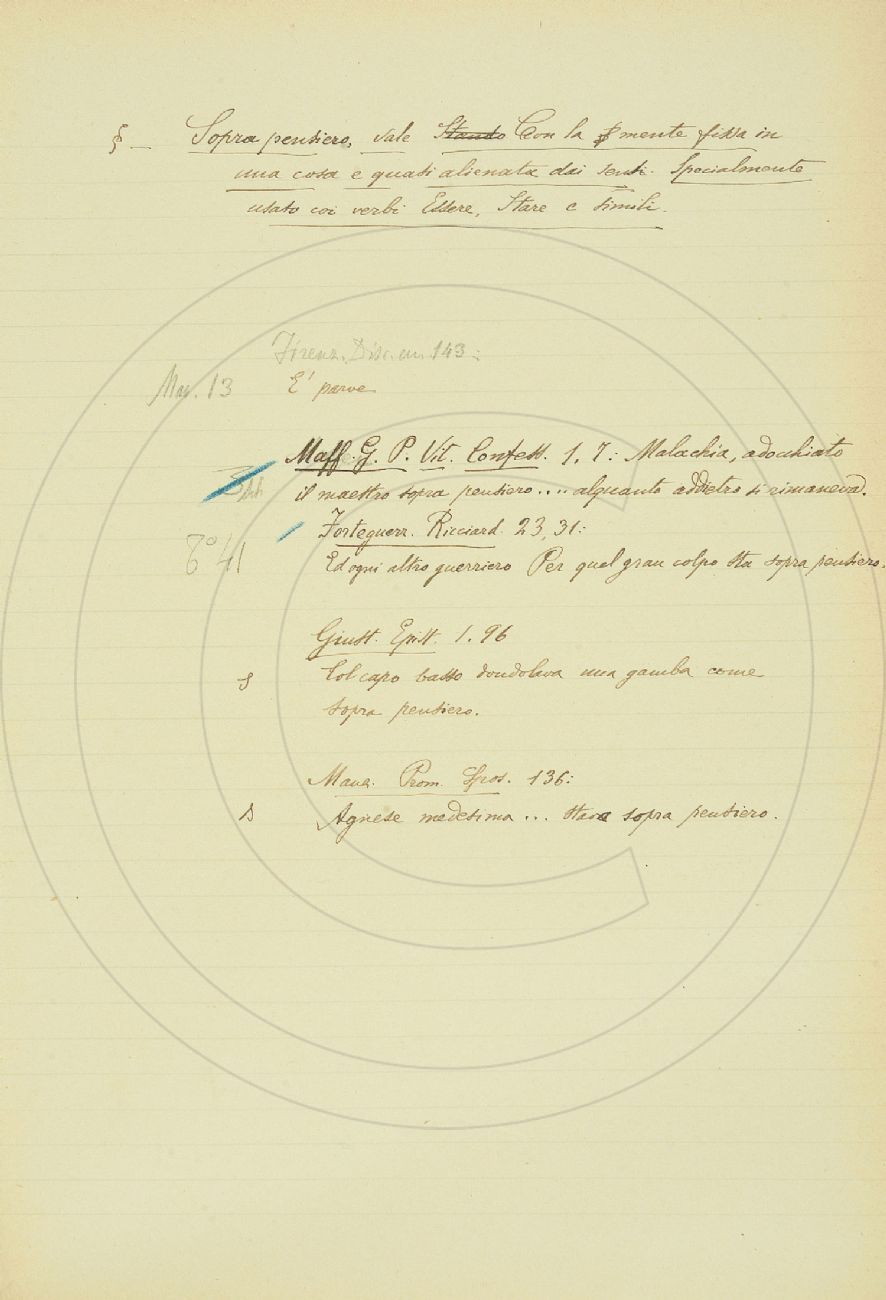 § _ Sopra pensiero, vale Stando Con la f mente fissa in
una cosa e quasi alienata dai sensi. Specialmente
usato coi verbi Essere, Stare e simili.
Firenz. Disc. an. 143:
Mar. 13 E' parve
Maff. G. P. Vit. Confess. 1, 7: Malachia, adocchiato
il maestro sopra pensiero.... alquanto addietro si rimaneva.
Forteguerr. Ricciard. 23, 31:
8° 41 Ed ogni altro guerriero Per quel gran colpo sta sopra pensiero.
Giust. Epist. 1. 96
S Col capo basso dondolava una gamba come
sopra pensiero.
Manz. Prom. Spos. 136:
S Agnese medesima ... stava sopra pensiero.